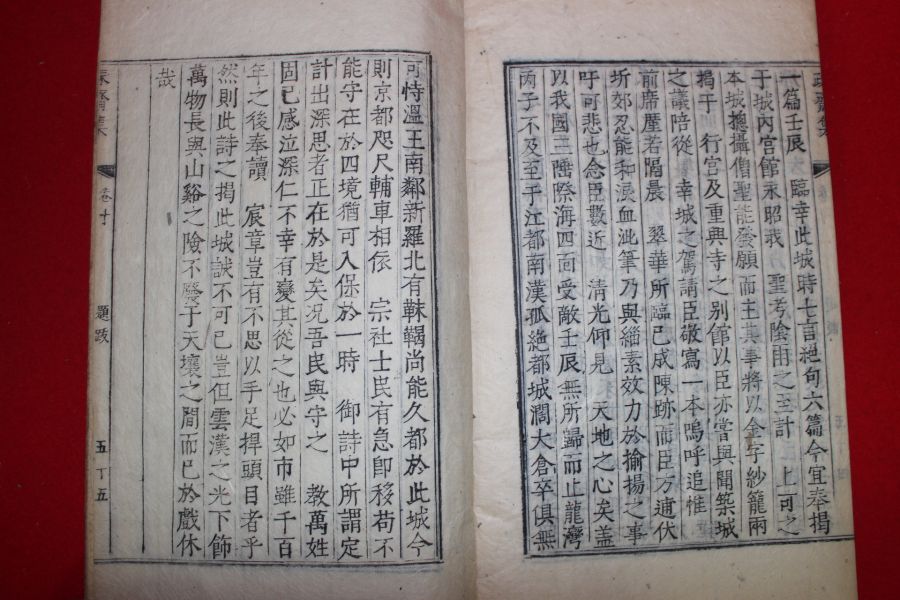 一篇壬辰 臨幸此城時七言絶句六篇今宜奉揭
于城內宮館永昭我 聖考陰雨之至計 上可之
本城摠攝僧聖能發願而主其事將以金字紗籠兩
揭于 行宮及重興寺之別館以臣亦嘗與聞築城
之議陪從 幸城之駕請臣敬寫一本嗚呼追惟
前席歷若隔晨 翠華所臨已成陳跡而臣方逋伏
圻郊忍能和淚血泚筆乃與緇素效力於揄揚之事
吁可悲也念臣數近 淸光仰見 天地之心矣盖
以我國三陲際海四面受敵壬辰無所歸而止龍灣
丙子不及至于江都南漢孤絶都城濶大倉卒俱無
可恃溫王南鄰新羅北有靺鞨尙能久都於此城今
則京都咫尺輔車相依 宗社士民有急卽移苟不
能守在於四境猶可入保於一時 御詩中所謂定
計出深思者正在於是矣况吾民與守之 敎萬姓
固已感泣深仁不幸有變其從之也必如市雖千百
年之後奉讀 宸章豈有不思以手足捍頭目者乎
然則此詩之揭此城誠不可已豈但雲漢之光下飾
萬物長與山谿之險不廢于天壤之間而已於戱休
哉
卷十 題跋 五 丁五